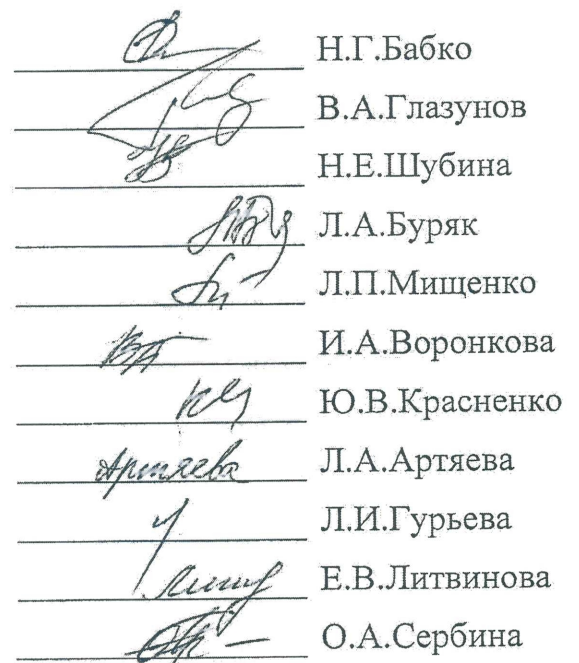 Н.Г.Бабко
В.А.Глазунов
Н.Е.Шубина
Л.А.Буряк
Л.П.Мищенко
И.А.Воронкова
Ю.В.Красненко
Артяева Л.А.Артяева
Л.И.Гурьева
Е.В.Литвинова
О.А.Сербина